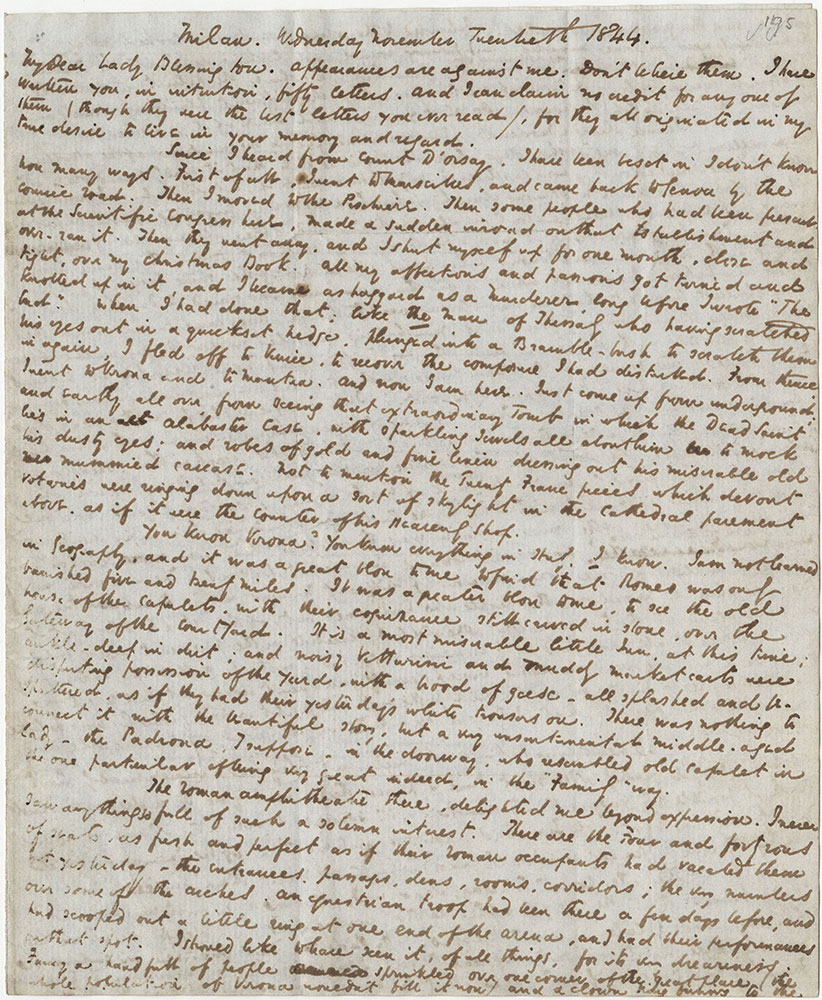 195
Milan. Wednesday November Twentieth 1844.
My Dear Lady Blessington. Appearances are against me. Don't believe them. I have
written you, in intention, fifty letters. And I can claim no credit for any one of
them (though they were the best letters you ever read), for they all originated in my
true desire to live in your memory and regard.
Since I heard from Count D'orsay, I have been beset in I don't know
how many ways. First of all, I went to Marseilles, and came back to Genoa by the
cornice road. Then I moved to the Peschiere. Then some people who had been present
at the Scientific Congress here, made a sudden inroad on that Establishment and
over-ran it. Then they went away, and I shut myself up for one month, close and
tight, over my Christmas Book. All my affections and passions got turned and
knotted up in it, and I became as haggard as a murderer, long before I wrote "The
End." When I had done that; like the man of Thessaly who having scratched
his eyes out in a quickset hedge, plunged into a Bramble-bush to scratch them
in again, I fled off to Venice, to recover the composure I had disturbed. From thence
I went to Verona and to Mantua. And now I am here. Just come up from underground
and earthy all over, from seeing that extraordinary Tomb in which the Dead Saint
lies in an alabaster case with sparkling Jewels all about him to mock
his dusty eyes; and robes of gold and fine linen dressing out his miserable old
mummied carcase. Not to mention the Twenty Franc pieces which devout
votaries were ringing down upon a sort of skylight in the Cathedral pavement
above, as if it were the counter of his Heavenly Shop.
You know Verona? You know everything in Italy, I know. I am not learned
in Geography, and it was a great blow to me to find that Romeo was only
banished five and twenty miles. It was a greater blow to me, to see the old
house of the Capulets, with their cognizance still carved in stone, over the
gateway of the court yard. It is a most miserable little Inn, at this time;
ankle-deep in dirt; and noisy Vetturini and muddy market carts were
disputing possession of the yard, with a brood of geese - all splashed and be-
spattered, as if they had their yesterday's white trousers on. There was nothing to
connect it with the beautiful story, but a very unsentimental middle-aged
lady - the Padrona, I suppose - in the doorway, who resembled old Capulet in
the one particular of being very great indeed, in the "Family" way.
The Roman amphitheatre there, delighted me beyond expression. I never
saw anything so full of such a solemn interest. There are the Four and forty rows
of seats, as fresh and perfect as if their Roman occupants had vacated them
but yesterday - the entrances, passages, dens, rooms, corridors; the very numbers
over some of the arches. An equestrian troop had been there a few days before, and
had scooped out a little ring at one end of the arena, and had their performances
on that spot. I should like to have seen it, of all things, for its very dreariness.
Fancy a handfull of people sprinkled over one corner of the great place (the
whole population of Verona wouldn't fill it now) and a clown to the